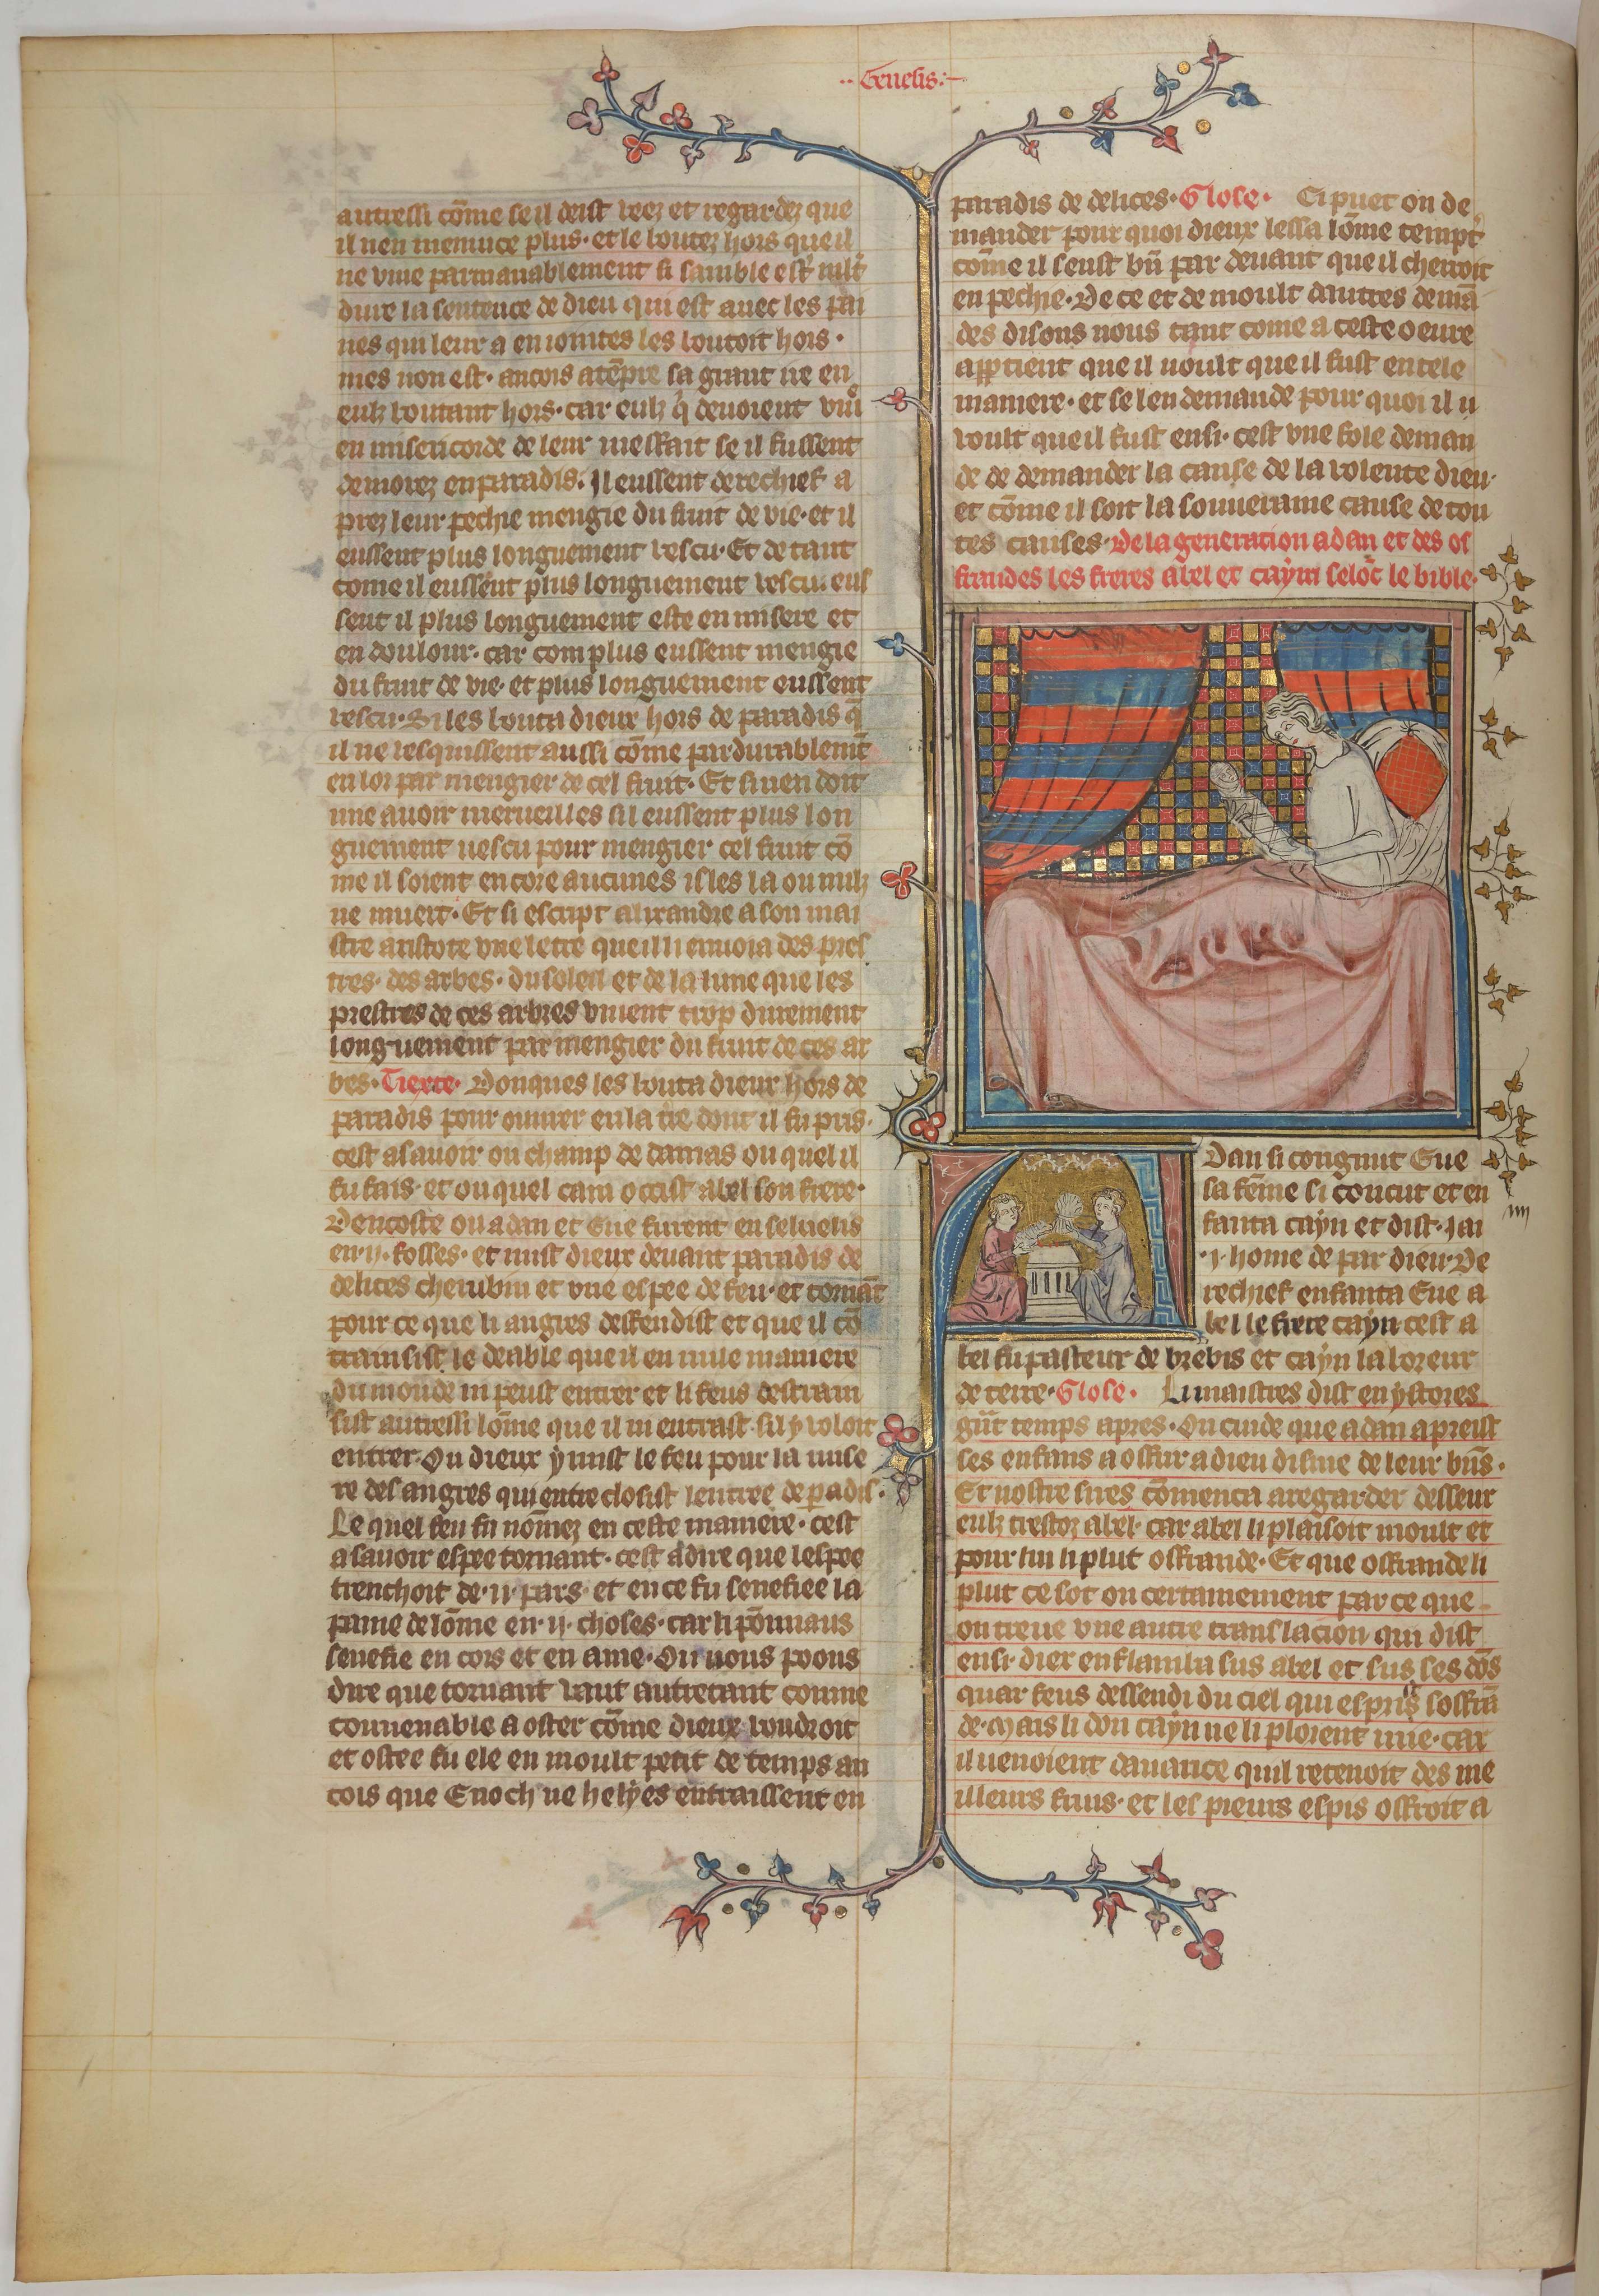 ·· Genesis :~
autressi cōme se il deist veez et regardez que
il nen meniuce plus · et le boutez hors que il
ne viue parmanablement si samble estr
dure la sentence de dieu qui est auec les pai
nes qui leur a eniointes les boutoit hors ·
mes non est · ancois atēpre sa grant ire en
eulz boutant hors · car eulz q̄ deuoient
en misericorde de leur messait se il fussent
demorez en paradis · Il eussent derechief a
prez leur pechie mengie du fruit de vie · et il
eussent plus longuement vescu · Et de tant
come il eussent plus longuement vescu · eus
sent il plus longuement este en misere et
en doulour · car com plus eussent mengie
du fruit de vie · et plus longuement eussent
vescu · Si les bouta dieux hors de paradis q̄
il ne vesquissent aussi cōme pardurablemēt
en lor par mengier de cel fruit · Et si nen doit
nne auoir merueilles sil eussent plus lon
guement vescu pour mengier cel fruit cō
me il soient encore aucunes isles la ou nulz
ne muert · Et si escript alixandre a son mai
stre aristote vne letre que il li enuoia des pres
tres · des arbes · du soleil et de la lune que les
prestres de ces arbres viuent trop durement
longuement par mengier du fruit de ces ar
bes · Tiexte · Donques les bouta dieux hors de
paradis pour ouurer en la tr̄e dont il fu pris ·
cest asauoir ou champ de damas ou quel il
fu fais · et ou quel cain occist abel son frere ·
Dencoste ou adan et Eue furent enseuelis
en · ij · fosses · et mist dieux deuant paradis de
delices cherubin et vne espee de feu · et tornāt
pour ce que li angres deffendist et que il cō
trainsist le deable que il en nule maniere
du monde ni peust entrer et li feus destrain
sist autressi lōme que il ni entrast sil y voloit
entrer · Ou dieux y mist le feu pour la mise
re des angres qui entreclosist lentree de paradis ·
Le quel feu fu nōmez en ceste maniere · cest
asauoir espee tornant · cest adire que lespee
trenchoit de · ij · pars · et en ce fu senefiee la
paine de lōme en · ij · choses · car li pōmiaus
senefie en cors et en ame · Ou nous poons
dire que tornant vaut autretant comme
conuenable a oster cōme dieux voudroit
et ostee fu ele en moult petit de temps an
cois que Enoch ne helyes entraissent en
paradis de delices · Glose · Ci puet on de
mander pour quoi dieux lessa lōme tempt̓
cōme il seust bn̄ par deuant que il cherroit
en pechie · De ce et de moult dautres demā
des disons nous tant come a ceste oeure
appartient que il uoult que il fust en tele
maniere · et se len demande pour quoi il u
voult que il fust ensi · cest vne fole deman
de de demander la cause de la volente dieu ·
et cōme il soit la souueraine cause de tou
tes causes · De la generation adan et des of
frandes les freres abel et cayin selōc le bible ·
Adan si congnut Eue
sa fēme si concut et en
fanta cayn et dist · Jai
· j · home de par dieu · De
rechief enfanta Eue a
bel le frere cayn cest a
bel fu pasteur de brebis et cayn laboreur
de terre · Glose · Li maistres dist en ystores
gn̄t temps apres · On cuide que adan apreist
ses enfans a offrir a dieu disme de leur bn̄s ·
Et nostre sires cōmenca a regarder desseur
eulz trestoz abel · car abel li plaisoit moult et
pour lui li plut offrande · Et que offrande li
plut ce sot on certainement par ce que
on treue vne autre translacion qui dist
ensi · diex enflamba sus abel et sus ses dōs
quar feus dessendi du ciel qui esprist soffrā
de · Mais li don cayn ne li plorent mie · car
il uenoient dauarice quil retenoit des me
illeurs fruis · et les pieurs espis offroit a
iiij